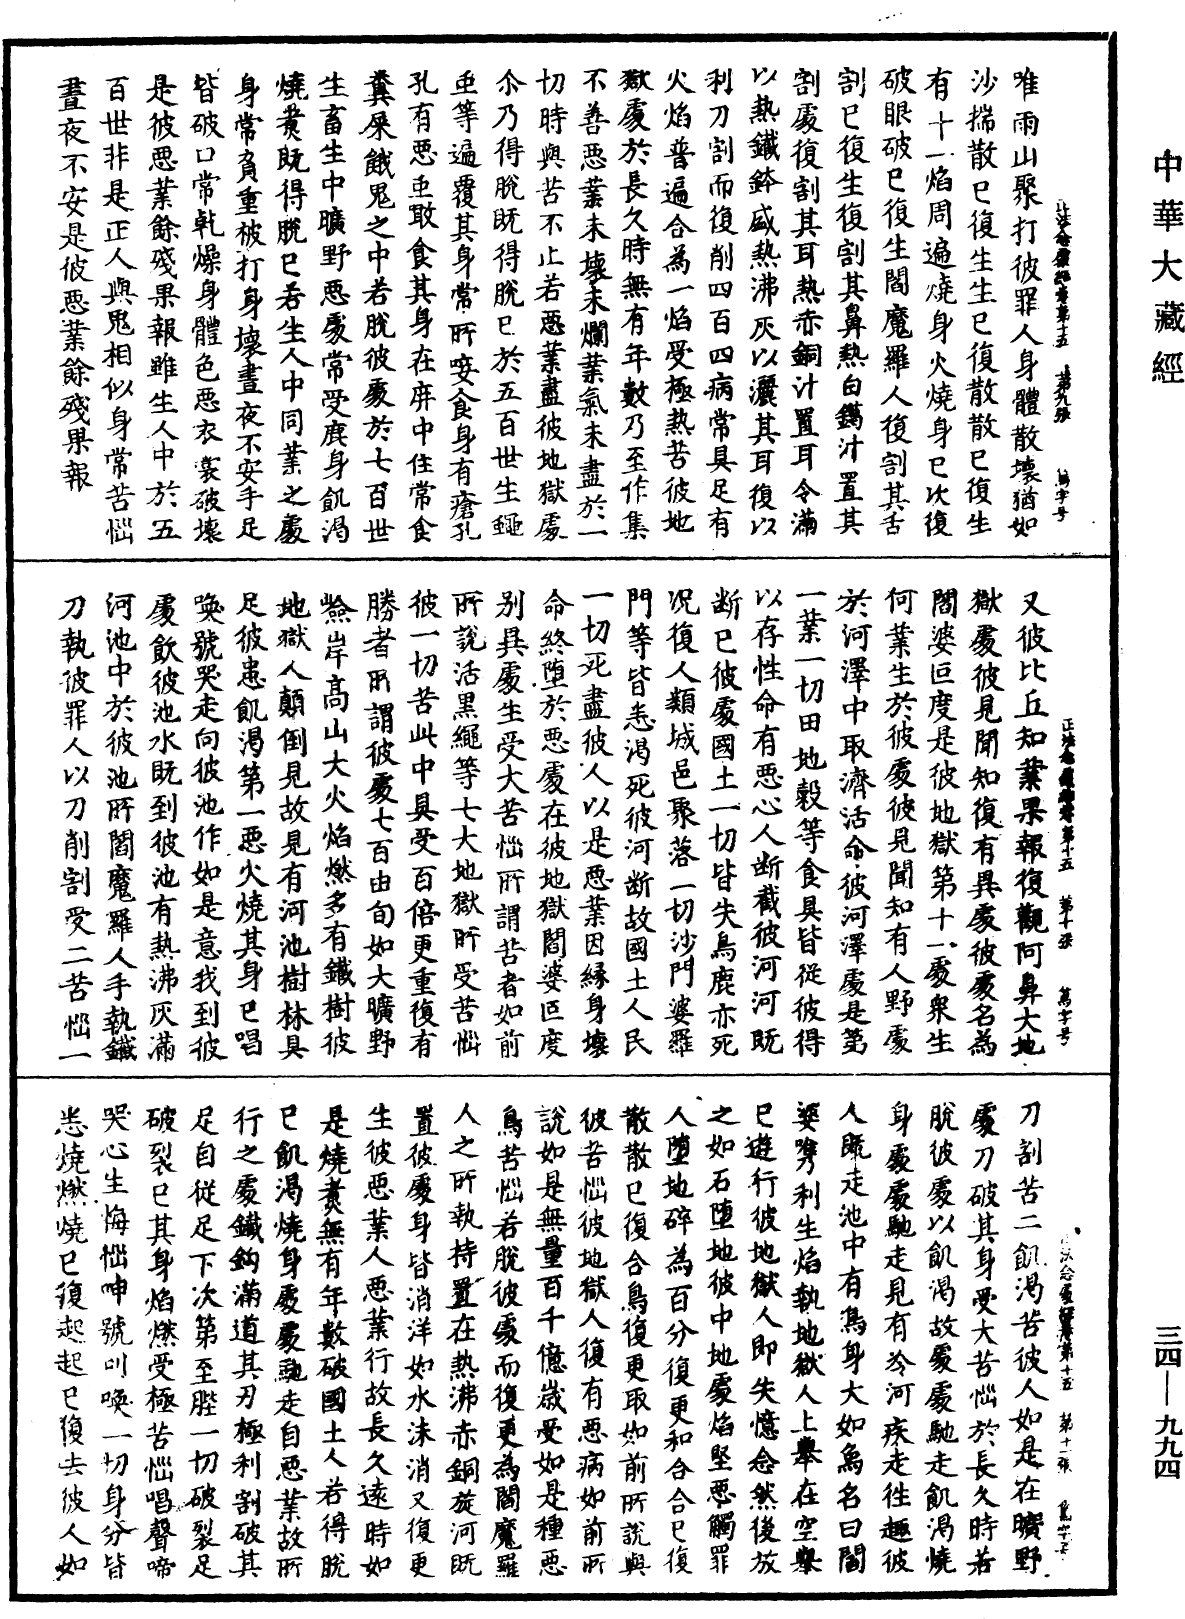 中華大藏經
唯雨山聚打彼罪人身體散壞猶如
沙揣散已復生生已復散散已復生
有十一焰周遍燒身火燒身已次復
破眼破已復生閻魔羅人復割其舌
割已復生復割其鼻熱白鑞汁置其
割處復割其耳熱赤銅汁置耳令滿
以熱鐵鉢盛熱沸灰以灑其耳復以
利刀割而復削四百四病常具足有
火焰普遍合為一焰受極熱苦彼地
獄處於長久時無有年數乃至作集
不善惡業未壞未爛業氣未盡於一
切時與苦不止若惡業盡彼地獄處
尒乃得脫既得脫已於五百世生
虫等遍覆其身常所唼食身有瘡孔
孔有惡虫敢食其身在屏中住常食
糞屎餓鬼之中若脫彼處於七百世
生畜生中曠野惡處常受鹿身飢渴
燒煑既得脫已若生人中同業之處
身常負重被打身壞晝夜不安手足
皆破口常乾燥身體色惡衣裳破壞
是彼惡業餘殘果報雖生人中於五
百世非是正人與鬼相似身常苦惱
晝夜不安是彼惡業餘殘果報
又彼比丘知業果報復觀阿鼻大地
獄處彼見聞知復有異處彼處名為
閻婆叵度是彼地獄第十一處眾生
何業生於彼處彼見聞知有人野處
於河澤中取濟活命彼河澤處是第
一業一切田地穀等食具皆從彼得
以存性命有惡心人斷截彼河河既
斷已彼處國土一切皆失鳥鹿亦死
況復人類城邑聚落一切沙門婆羅
門等皆悉渴死彼河斷故國土人民
一切死盡彼人以是惡業因緣身壞
命終墮於惡處在彼地獄閻婆叵度
別異處生受大苦惱所謂苦者如前
所說活黑繩等七大地獄所受苦惱
彼一切苦此中具受百倍更重復有
勝者所謂彼處七百由旬如大曠野
嶮岸高山大火焰燃多有鐵樹彼
地獄人顛倒見故見有河池樹林具
足彼患飢渴第一惡火燒其身已唱
喚號哭走向彼池作如是意我到彼
處飲彼池水既到彼池有熱沸灰滿
河池中於彼池所閻魔羅人手執鐵
刀執彼罪人以刀削割受二苦惱一
刀割苦二飢渴苦彼人如是在曠野
處刀破其身受大苦惱於長久時若
脫彼處以飢渴故處處馳走飢渴燒
身處處馳走見有冷河疾走往趣彼
人既走池中有鳥身大如象名曰閻
婆㭰利生焰執地獄人上舉在空舉
已遊行彼地獄人即失憶念然後放
之如石墮地彼中地處焰堅惡觸罪
人墮地碎為百分復更和合合已復
散散已復合鳥復更取如前所說與
彼苦惱彼地獄人復有惡病如前所
說如是無量百千億歲受如是種惡
鳥苦惱若脫彼處而復更為閻魔羅
人之所執持置在熱沸赤銅旋河既
置彼處身皆消洋如水沫消又復更
生彼惡業人惡業行故長久遠時如
是燒煑無有年數破國土人若得脫
已飢渴燒身處處馳走自惡業故所
行之處鐵鉤滿道其刃極利割破其
足自從足下次第至髀一切破裂足
破裂已其身焰燃受極苦惱唱聲啼
哭心生悔惱呻號叫喚一切身分皆
悉燒燃燒已復起起已復去彼人如
三四—九九四